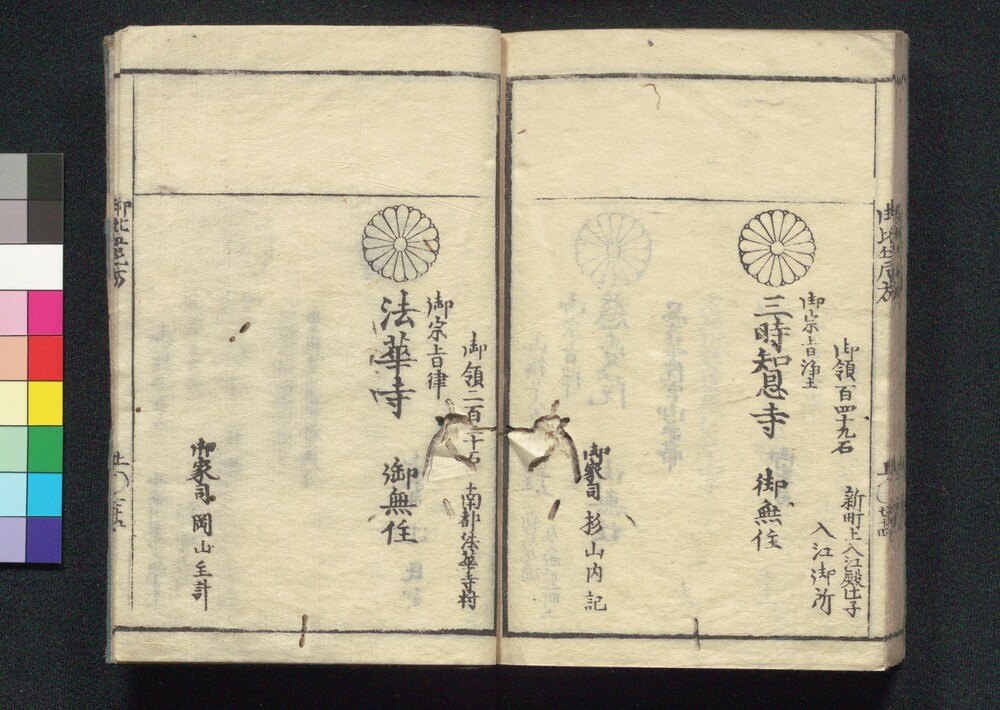 御領百四十九石
新町上入江殿辻子
御宗旨浄土
入江御所
三時知恩寺
御無住
御家司 杉山内記
御領二百二十石
南都法華寺村
御宗旨律
法華寺
御無住
御家司 岡山主計